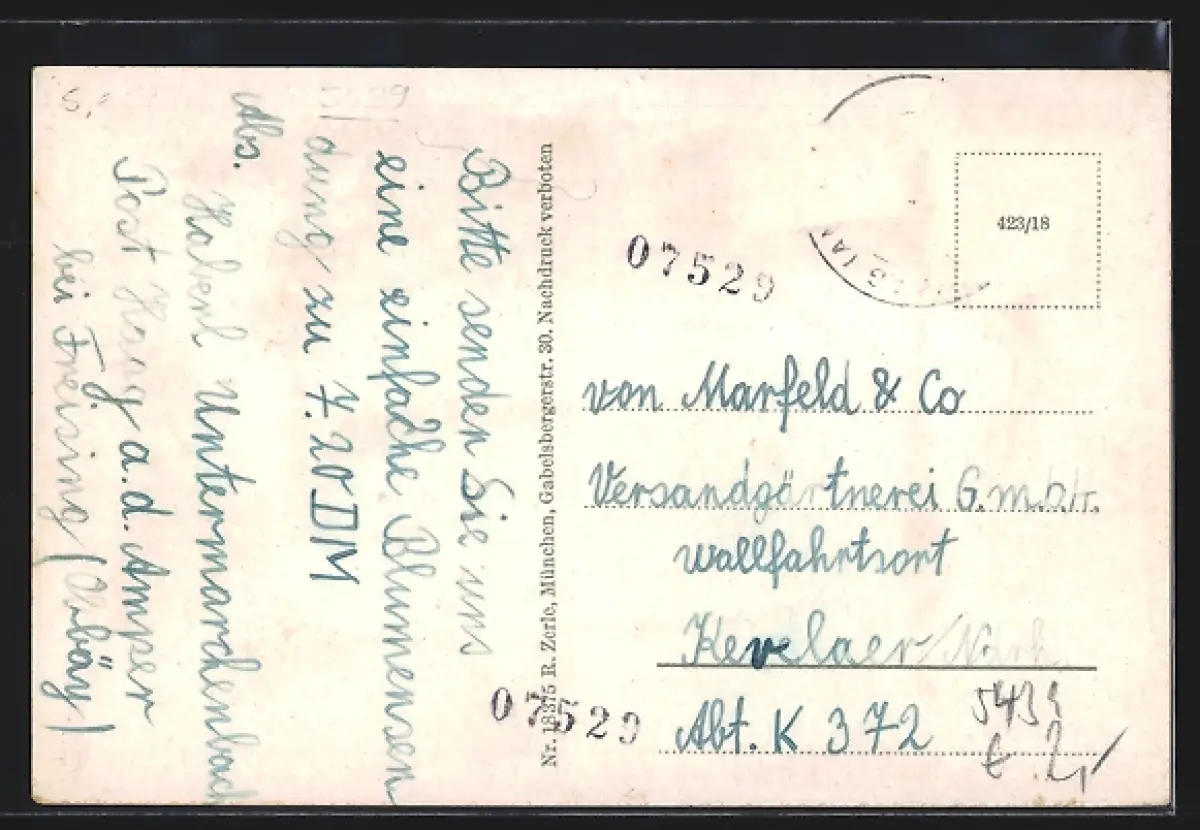 Bitte senden Sie uns
eine einfache Blumensen
dung zu 7.20 DM
Abs.
Haberl Untermarchenbach
Post Haag a.d. Amper
bei Freising (Obbay)
Nr. 18375 R. Zerle, München, Gabelsbergerstr. 30. Nachdruck verboten
423/18
07529
von Marfeld & Co
Versandgärtnerei G.m.b.H.
Wallfahrtsort
Kevelaer/Ndrh.
Abt. K 372
07529